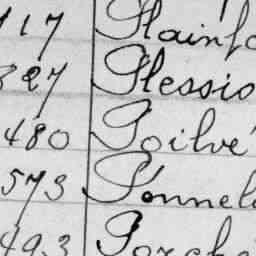 117 Plainfo
327 Plessio
480 Poilvé
573 Ponnel
493 Porche